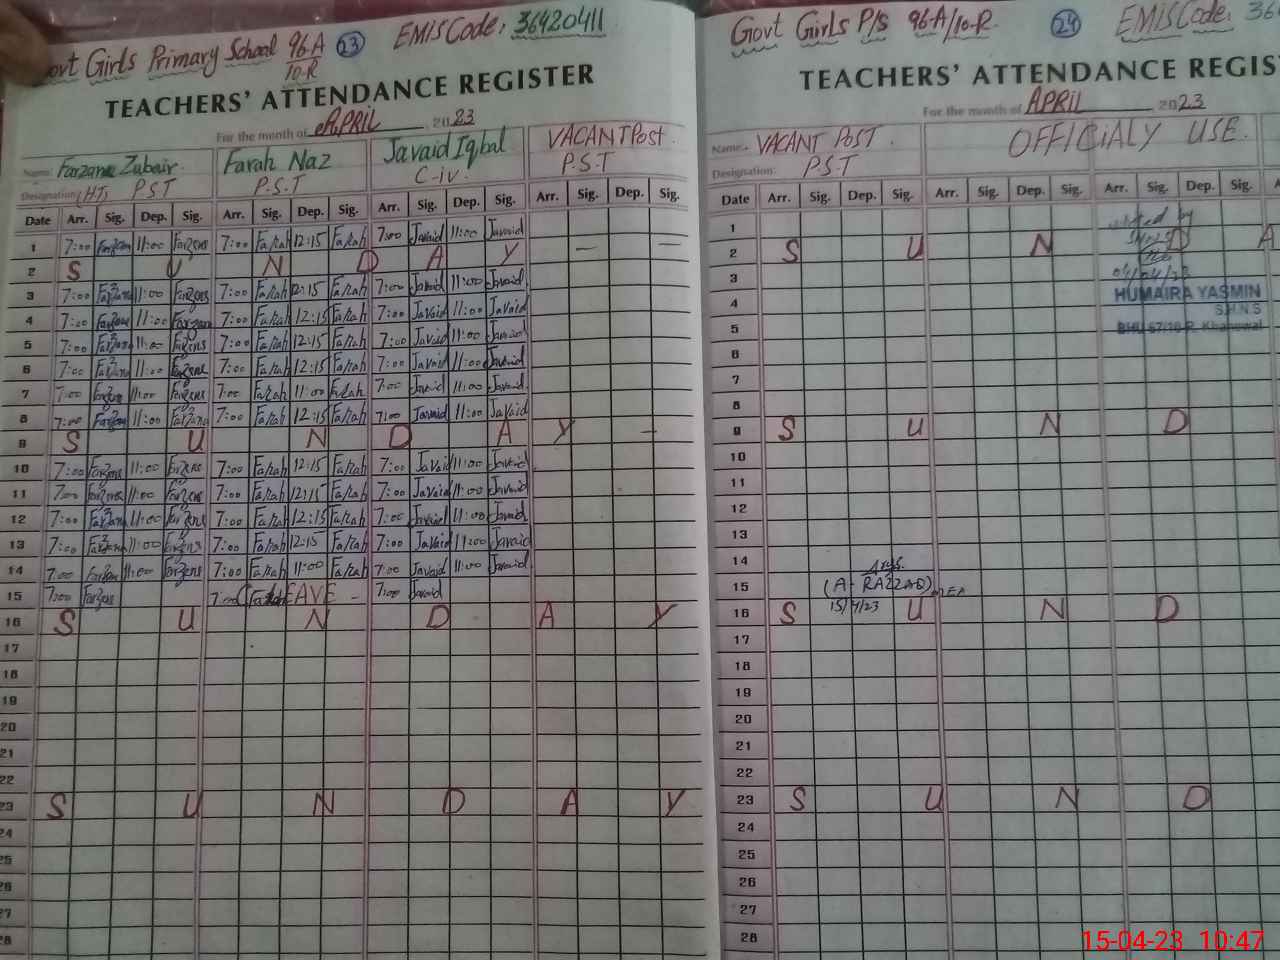 Govt Girls Primary School 96-A/10-R 23 EMIS Code: 36420411
TEACHERS' ATTENDANCE REGISTER
For the month of APRIL, 2023
Name: Farzana Zubair. Farah Naz Javaid Iqbal VACANT Post.
Designation: (HT) P S T P.S.T C-iv. P.S.T
Date Arr. Sig. Dep. Sig. Arr. Sig. Dep. Sig. Arr. Sig. Dep. Sig. Arr. Sig. Dep. Sig.
1 7:00 Farzana 11:00 Farzana 7:00 Farah 12:15 Farah 7:00 Javaid 11:00 Javaid
2 S U N D A Y
3 7:00 Farzana 11:00 Farzana 7:00 Farah 12:15 Farah 7:00 Javaid 11:00 Javaid
4 7:00 Farzana 11:00 Farzana 7:00 Farah 12:15 Farah 7:00 Javaid 11:00 Javaid
5 7:00 Farzana 11:00 Farzana 7:00 Farah 12:15 Farah 7:00 Javaid 11:00 Javaid
6 7:00 Farzana 11:00 Farzana 7:00 Farah 12:15 Farah 7:00 Javaid 11:00 Javaid
7 7:00 Farzana 11:00 Farzana 7:00 Farah 11:00 Farah 7:00 Javaid 11:00 Javaid
8 7:00 Farzana 11:00 Farzana 7:00 Farah 12:15 Farah 7:00 Javaid 11:00 Javaid
9 S U N D A Y
10 7:00 Farzana 11:00 Farzana 7:00 Farah 12:15 Farah 7:00 Javaid 11:00 Javaid
11 7:00 Farzana 11:00 Farzana 7:00 Farah 12:15 Farah 7:00 Javaid 11:00 Javaid
12 7:00 Farzana 11:00 Farzana 7:00 Farah 12:15 Farah 7:00 Javaid 11:00 Javaid
13 7:00 Farzana 11:00 Farzana 7:00 Farah 12:15 Farah 7:00 Javaid 11:00 Javaid
14 7:00 Farzana 11:00 Farzana 7:00 Farah 11:00 Farah 7:00 Javaid 11:00 Javaid
15 7:00 Farzana 7:00 Farah LEAVE - 7:00 Javaid
16 S U N D A Y
17
18
19
20
21
22
23 S U N D A Y
24
25
26
27
28
Govt Girls P/S 96-A/10-R 24 EMIS Code: 36
TEACHERS' ATTENDANCE REGIS
For the month of APRIL 2023
Name: VACANT POST. OFFICIALY USE.
Designation: P.S.T
Date Arr. Sig. Dep. Sig. Arr. Sig. Dep. Sig. Arr. Sig. Dep. Sig. A
1 visited by
2 S U N D A
3 04/04/23
4 HUMAIRA YASMIN
S.H.N.S
5 BHU 67/10-R, Khanewal
6
7
8
9 S U N D
10
11
12
13
14
15 (A-RAZZAQ) MEA
16 S 15/4/23 U N D
17
18
19
20
21
22
23 S U N D
24
25
26
27
28
15-04-23 10:47